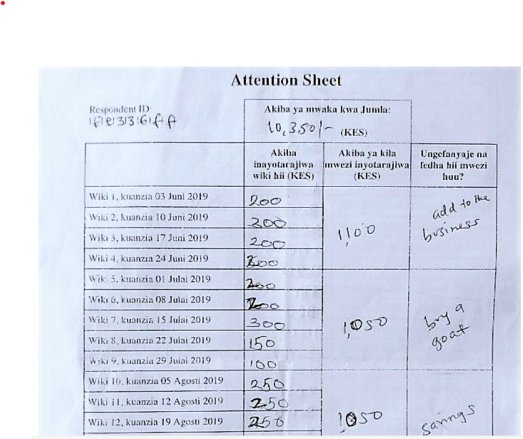 Attention Sheet
Respondent ID
Akiba ya mwaka kwa Jumla:
10,350/- (KES)
Akiba inayotarajiwa wiki hii (KES)
Akiba ya kila mwezi inyotarajiwa (KES)
Ungefanyaje na fedha hii mwezi huu?
Wiki 1, kuanzia 03 Juni 2019 200
Wiki 2, kuanzia 10 Juni 2019
Wiki 3, kuanzia 17 Juni 2019 200
Wiki 4, kuanzia 24 Juni 2019
1,100
add to the business
Wiki 5, kuanzia 01 Julai 2019 200
Wiki 6, kuanzia 08 Julai 2019 200
Wiki 7, kuanzia 15 Julai 2019 300
Wiki 8, kuanzia 22 Julai 2019 150
Wiki 9, kuanzia 29 Julai 2019 100
1,050
buy a goat
Wiki 10, kuanzia 05 Agosti 2019 250
Wiki 11, kuanzia 12 Agosti 2019 250
Wiki 12, kuanzia 19 Agosti 2019 250
1,050
savings